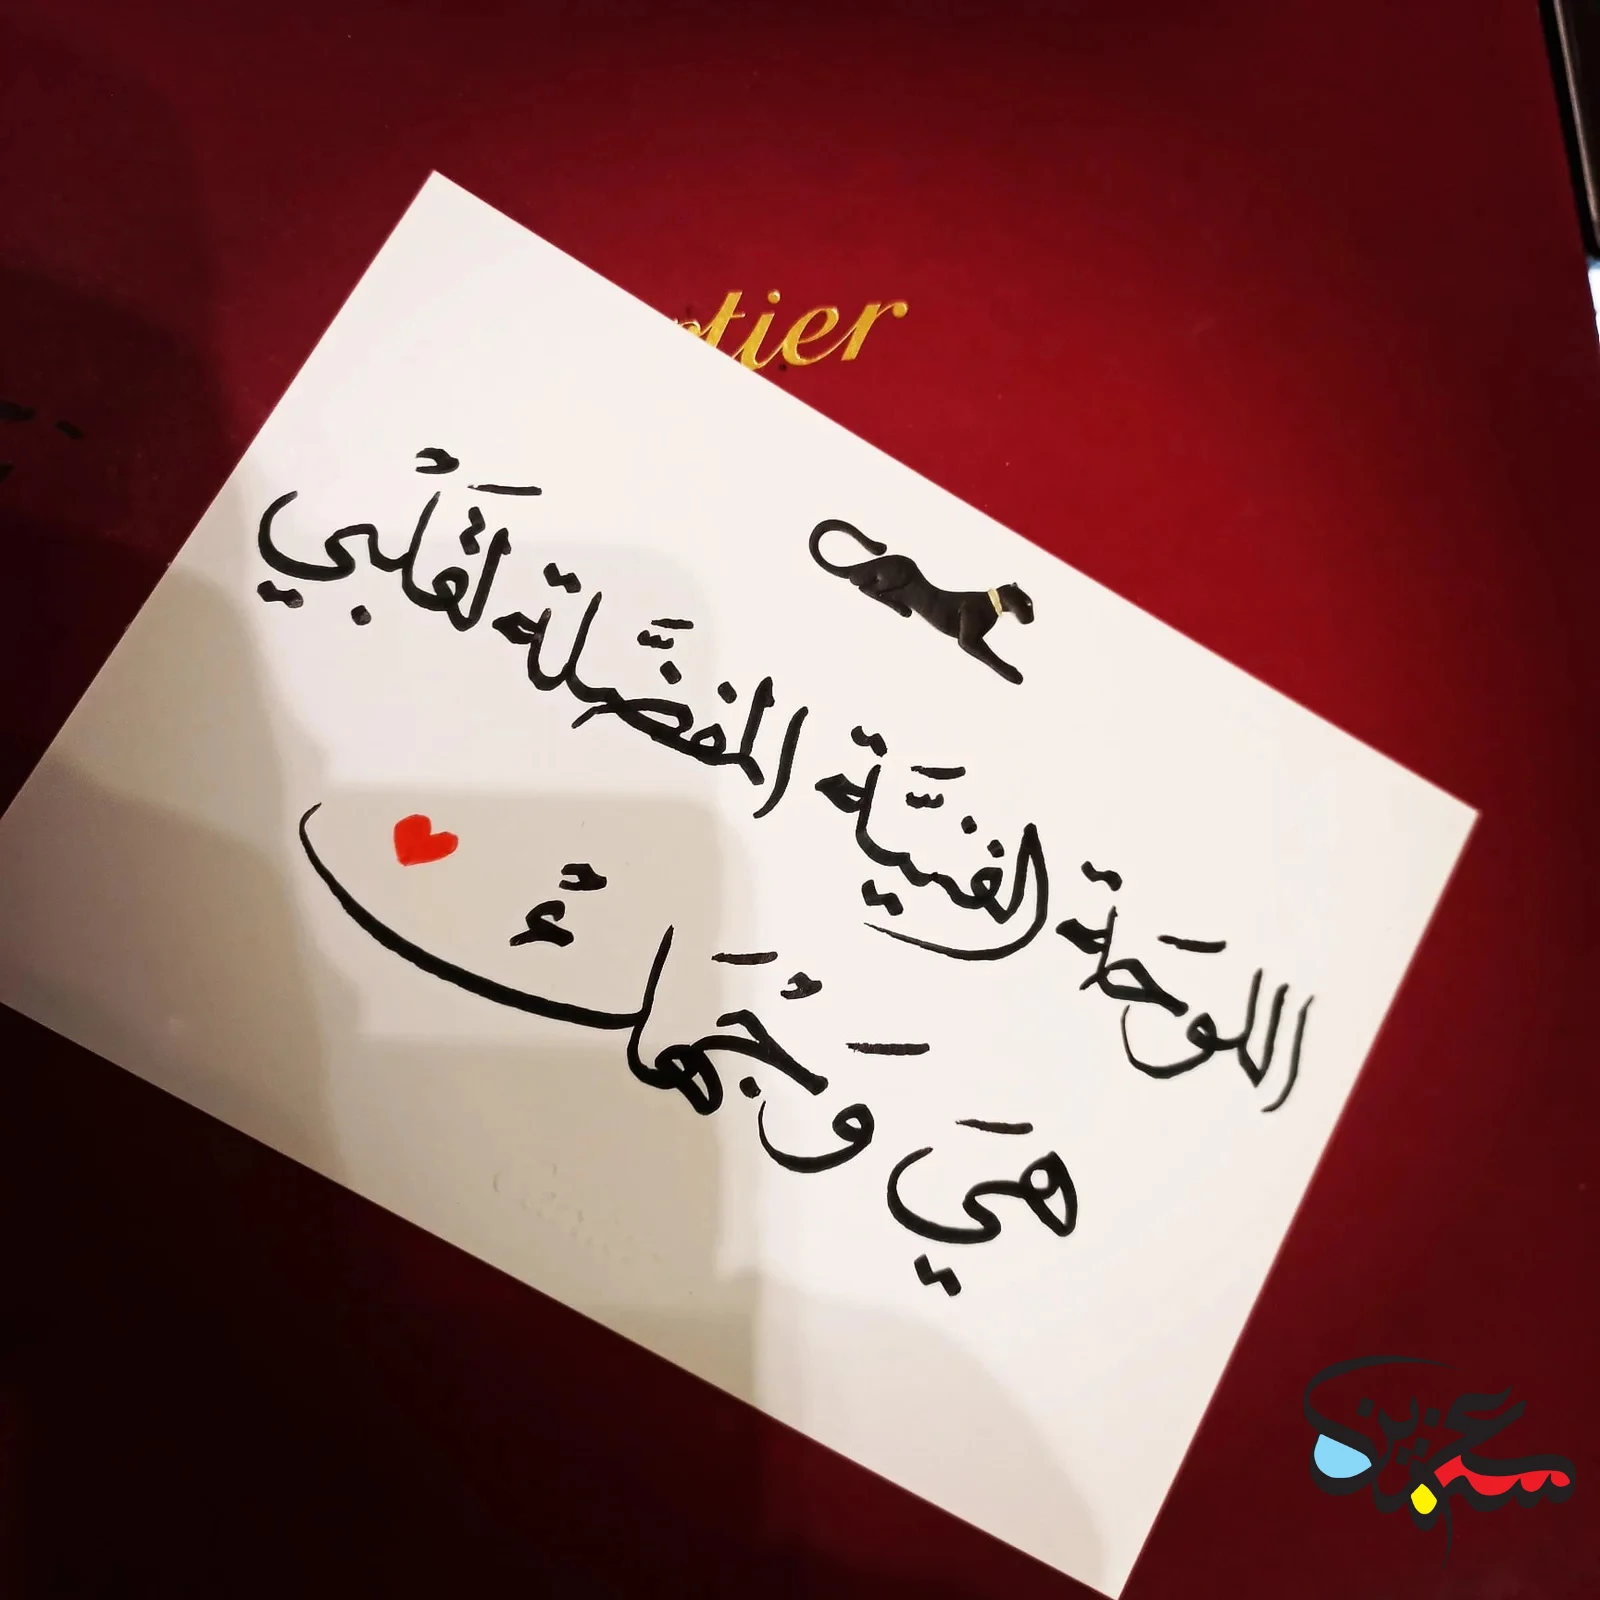 tier
اللوحَة الفنيَّة المفضَّلة لقَلْبي
هيَ وَجْهَكْ